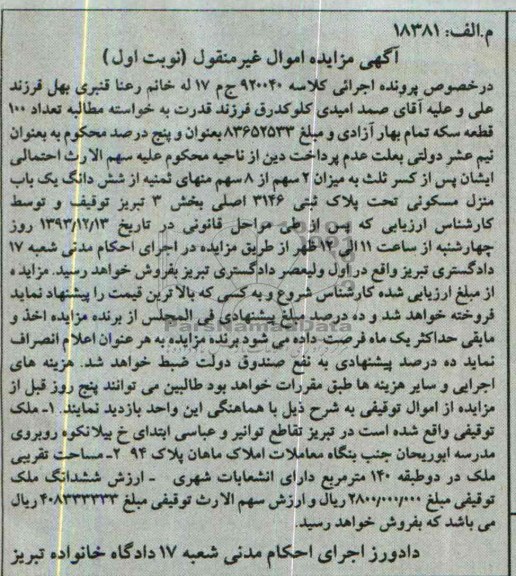 م.الف: ۱۸۳۸۱
آگهی مزایده اموال غیرمنقول (نوبت اول)
درخصوص پرونده اجرائی کلاسه ۹۲۰۰۴۰ ج م ۱۷ له خانم رعنا قنبری بهل فرزند
علی و علیه آقای صمد امیدی کلوکدرق فرزند قدرت به خواسته مطالبه تعداد ۱۰۰
قطعه سکه تمام بهار آزادی و مبلغ ۸۳۶۵۲۵۳۳ بعنوان و پنج درصد محکوم به بعنوان
نیم عشر دولتی بعلت عدم پرداخت دین از ناحیه محکوم علیه سهم الارث احتمالی
ایشان پس از کسر ثلث به میزان ۲ سهم از ۸ سهم منهای ثمنیه از شش دانگ یک باب
منزل مسکونی تحت پلاک ثبتی ۳۱۴۶ اصلی بخش ۳ تبریز توقیف و توسط
کارشناس ارزیابی که پس از طی مراحل قانونی در تاریخ ۱۳۹۳/۱۲/۱۳ روز
چهارشنبه از ساعت ۱۱ الی ۱۲ ظهر از طریق مزایده در اجرای احکام مدنی شعبه ۱۷
دادگستری تبریز واقع در اول ولیعصر دادگستری تبریز بفروش خواهد رسید. مزایده
از مبلغ ارزیابی شده کارشناس شروع و به کسی که بالاترین قیمت را پیشنهاد نماید
فروخته خواهد شد و ده درصد مبلغ پیشنهادی فی المجلس از برنده مزایده اخذ و
مابقی حداکثر یک ماه فرصت داده می شود برنده مزایده به هر عنوان اعلام انصراف
نماید ده درصد پیشنهادی به نفع صندوق دولت ضبط خواهد شد. هزینه های
اجرایی و سایر هزینه ها طبق مقررات خواهد بود طالبین می توانند پنج روز قبل از
مزایده از اموال توقیفی به شرح ذیل با هماهنگی این واحد بازدید نمایند. ۱- ملک
توقیفی واقع شده است در تبریز تقاطع توانیر و عباسی ابتدای خ بیلانکوه روبروی
مدرسه ابوریحان جنب بنگاه معاملات املاک ماهان پلاک ۹۴ ۲- مساحت تقریبی
ملک در دوطبقه ۱۴۰ مترمربع دارای انشعابات شهری - ارزش ششدانگ ملک
توقیفی مبلغ ۲۸۰۰/۰۰۰/۰۰۰ ریال و ارزش سهم الارث توقیفی مبلغ ۴۰۸۳۳۳۳۳۳ ریال
می باشد که بفروش خواهد رسید.
دادورز اجرای احکام مدنی شعبه ۱۷ دادگاه خانواده تبریز
ParsNamadData